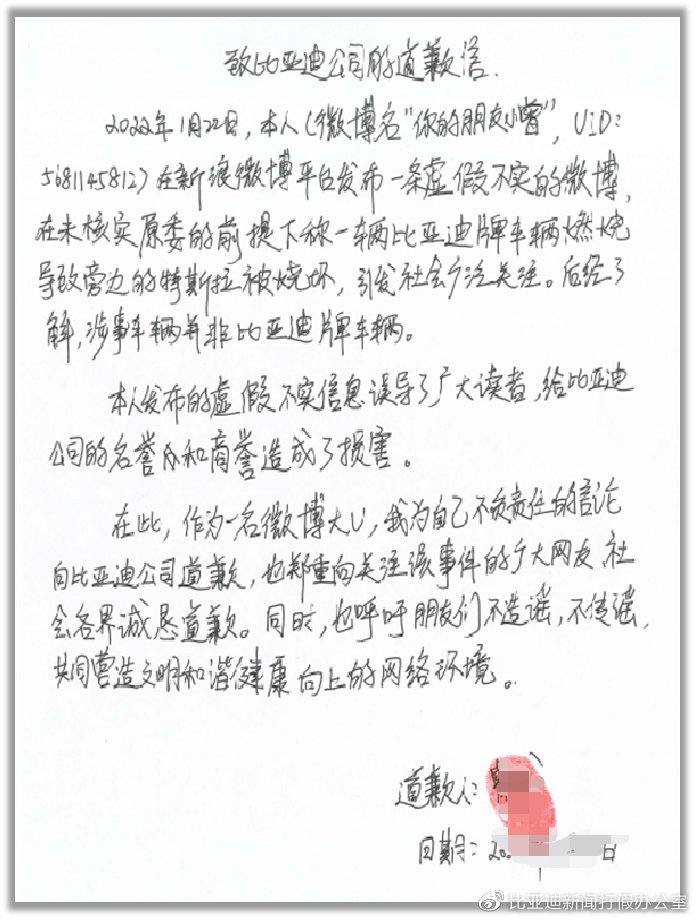 致比亚迪公司的道歉信.
2022年1月22日,本人(微博名"你的朋友小曾",UiD:
5681145812)在新浪微博平台发布一条虚假不实的微博,
在未核实原委的前提下称一辆比亚迪牌车辆燃烧
导致旁边的特斯拉被烧坏,引发社会广泛关注。后经了
解,涉事车辆并非比亚迪牌车辆。
本人发布的虚假不实信息误导了广大读者,给比亚迪
公司的名誉和商誉造成了损害。
在此,作为一名微博大V,我为自己不负责任的言论
向比亚迪公司道歉,也郑重向关注该事件的广大网友 社
会各界诚恳道歉。同时,也呼吁朋友们不造谣,不传谣,
共同营造文明和谐健康向上的网络环境。
道歉人:
日期:20 日
比亚迪新闻打假办公室